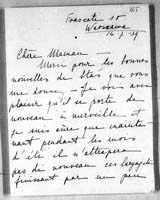 165
Frascati 10
Warszawa
16.7.39
Chère Maman —
Merci pour les bonnes
nouvelles de Stas que vous
me donnez — Je vois avec
plaisir qu'il se porte de
nouveau à merveille et
je suis sûre que mainte
nant pendant les mois
d'été il n'attrapera
pas de nouveau ces
finissant par un peu